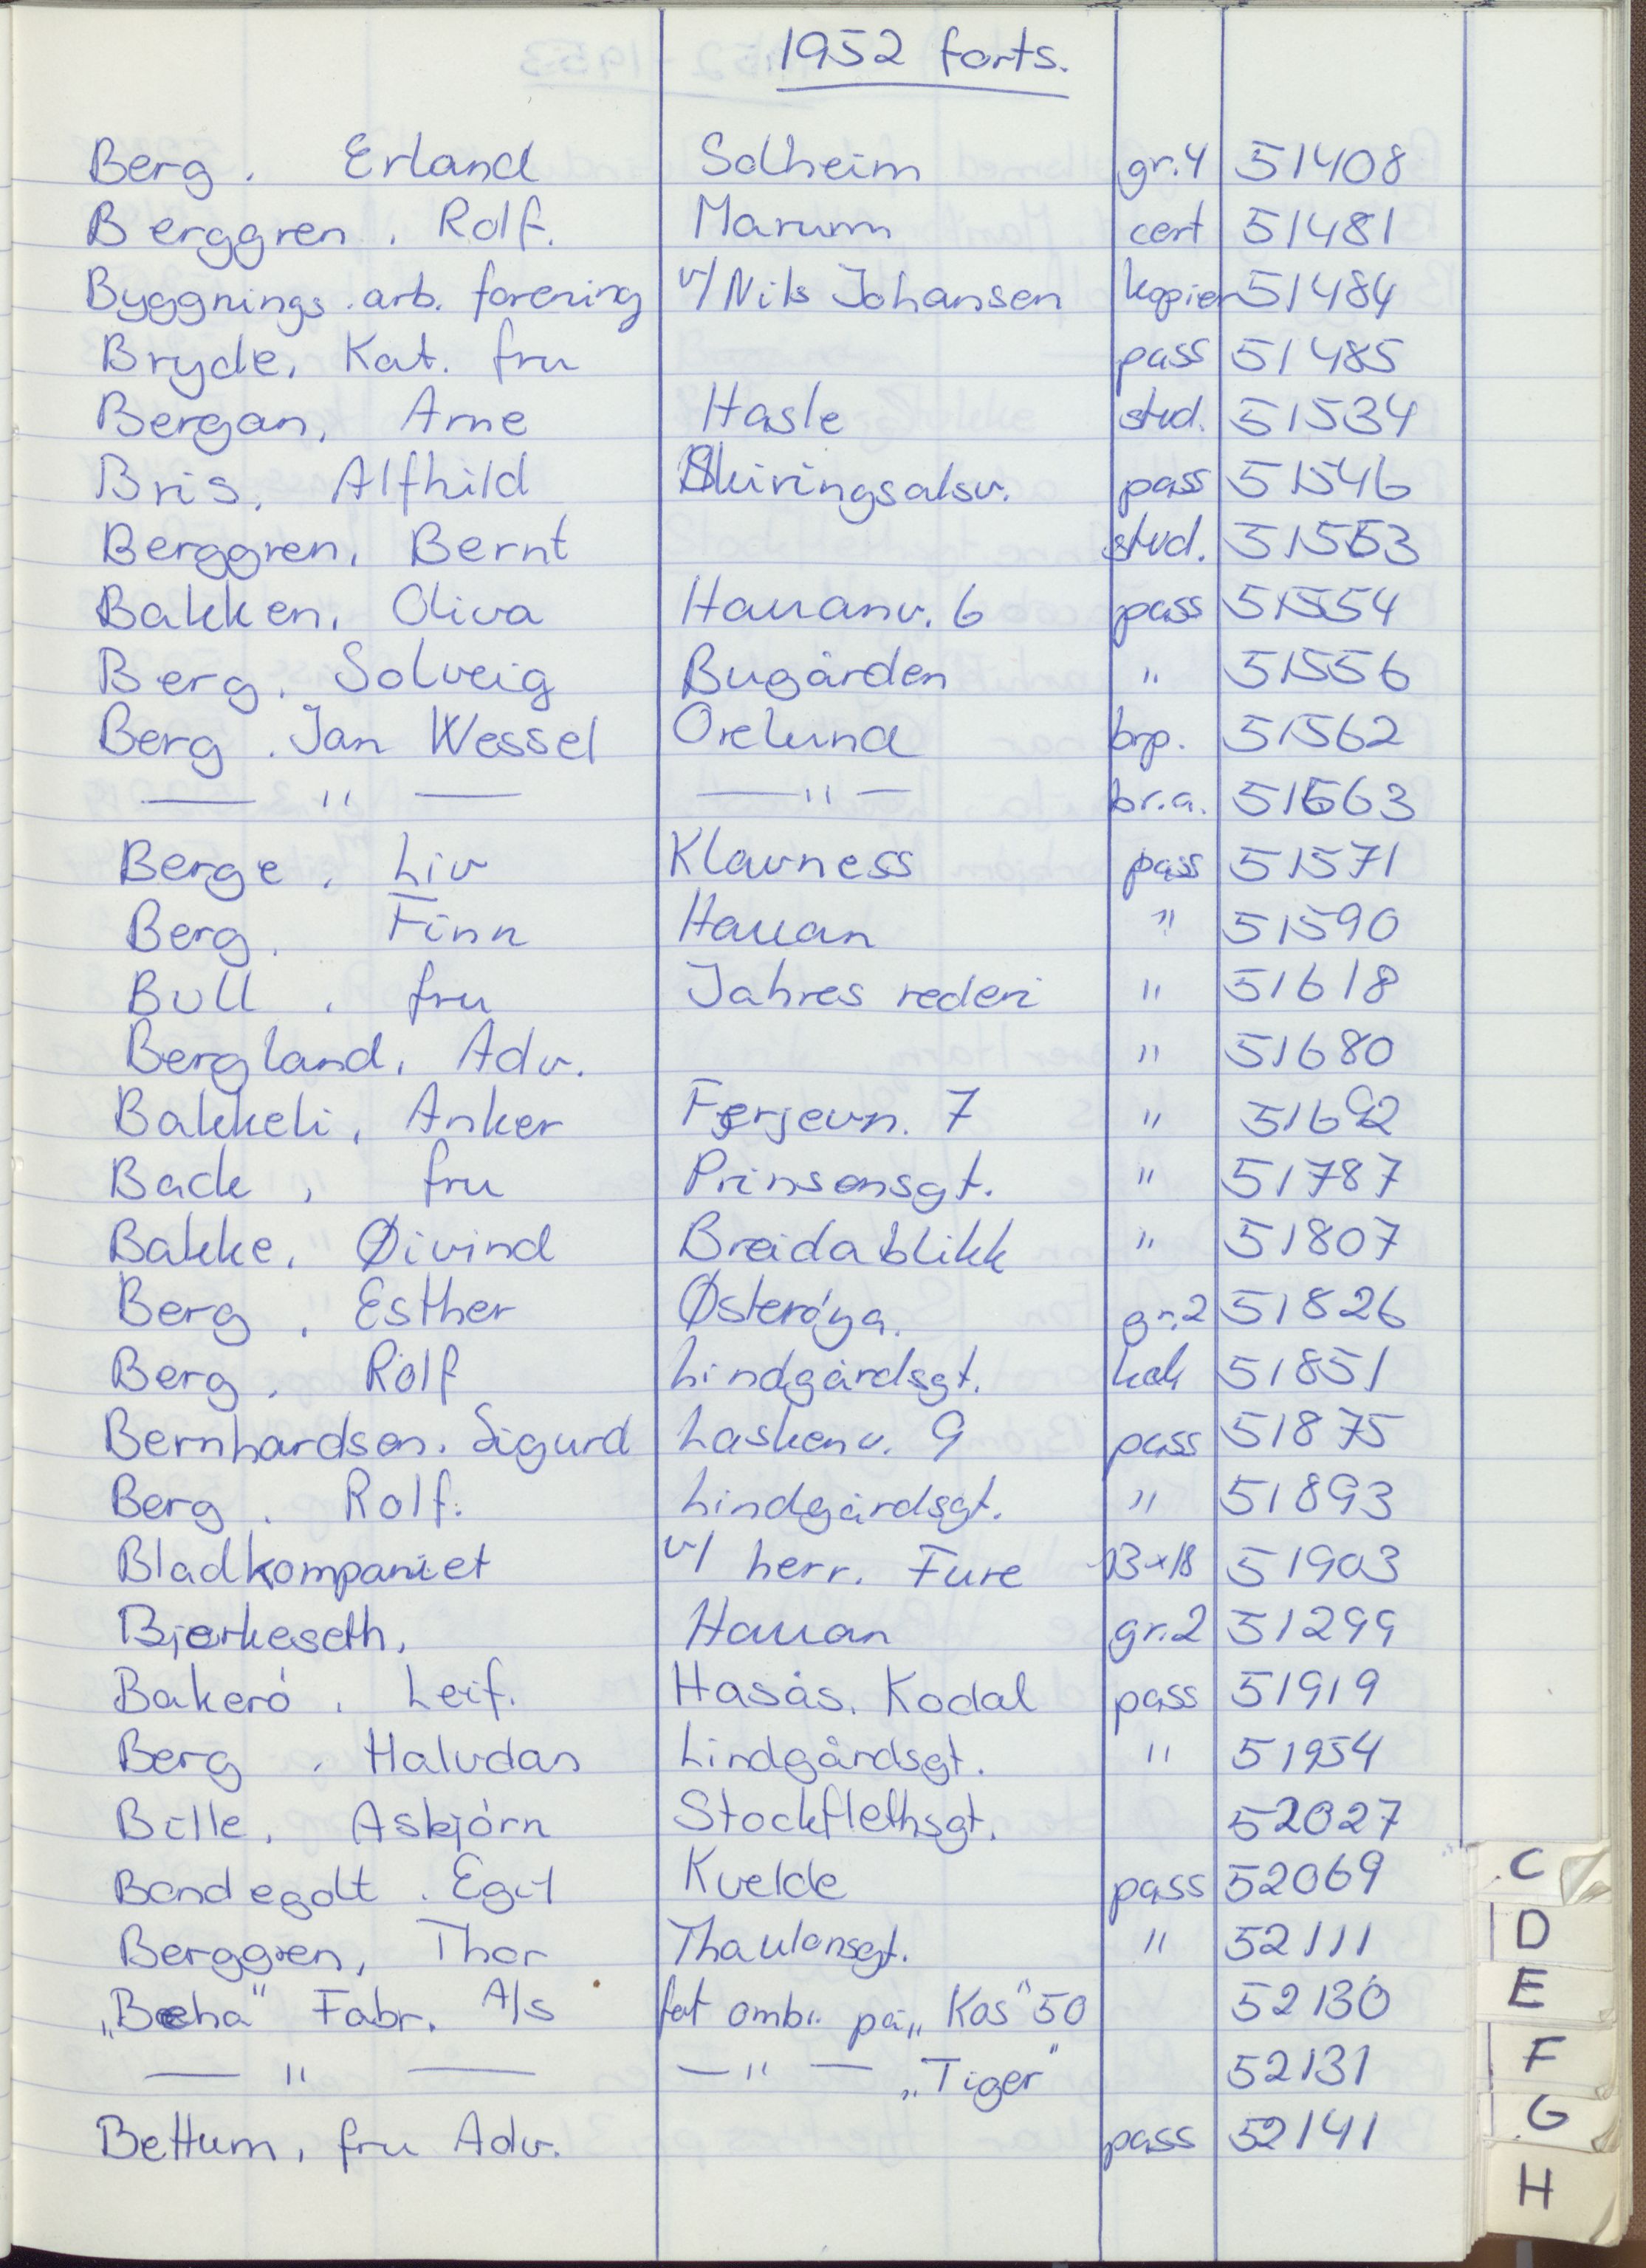 1952 forts.
Berg, Erland Solheim gr.4 51408
Berggren, Rolf. Marum cert 51481
Byggnings.arb. forening v/Nils Johansen kopier 51484
Bryde, Kat. fru pass 51485
Bergan, Arne Hasle stud. 51534
Bris, Alfhild Skiringsalsv. pass 51546
Berggren, Bernt stud. 51553
Bakken, Oliva Hauanv. 6 pass 51554
Berg, Solveig Bugården " 51556
Berg, Jan Wessel Orelund brp. 51562
— " — — " — br.a. 51563
Berge, Liv Klavness pass 51571
Berg, Finn Hauan " 51590
Bull, fru Jahres rederi " 51618
Bergland, Adv. " 51680
Bakkeli, Anker Ferjevn. 7 " 51692
Back, fru Prinsensgt. " 51787
Bakke, Øivind Breidablikk " 51807
Berg, Esther Østerøya. gr.2 51826
Berg, Rolf Lindgårdsgt. kak 51851
Bernhardsen, Sigurd Laskenv. 9 pass 51875
Berg, Rolf. Lindgårdsgt. " 51893
Bladkompaniet v/ herr. Fure 13x18 51903
Bjerkeseth, Hauan gr.2 51299
Bakerø, Leif. Hasås, Kodal pass 51919
Berg, Halvdan Lindgårdsgt. " 51954
Bille, Asbjørn Stockflethsgt. 52027
Bondegolt, Egil Kvelde pass 52069
Berggren, Thor Thaulowsgt. " 52111
„Beha" Fabr. A/s fat ombr. på „Kos" 50 52130
— " — — " — „Tiger" 52131
Bettum, fru Adv. pass 52141
C
D
E
F
G
H